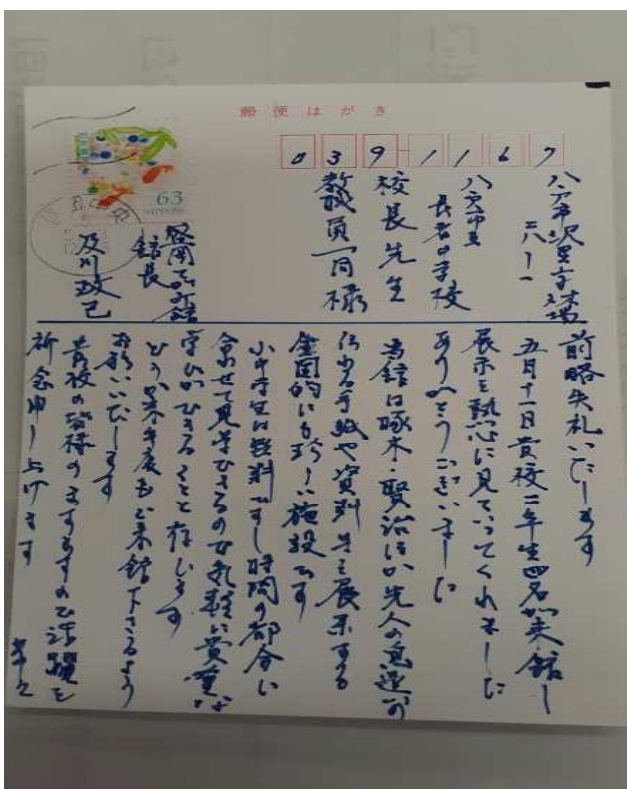 郵便はがき
63
NIPPON
0391167
八戸市沢里字休場
二八ー一
八戸市立
長者中学校
校長先生
教職員一同様
盛岡てがみ館
館長
及川政己
前略失礼いたします
五月十一日貴校二年生四名が来館し
展示を熱心に見ていってくれました
ありがとうございました
当館は啄木・賢治ほか先人の息遣が
伝わる手紙や資料等を展示する
全国的にも珍しい施設です
小中学生は無料ですし時間の都合に
合わせて見学できるので気軽に貴重な
学びができることと存じます
どうか来年度もご来館下さるよう
お願いいたします
貴校の皆様のますますのご活躍を
祈念申し上げます 草々